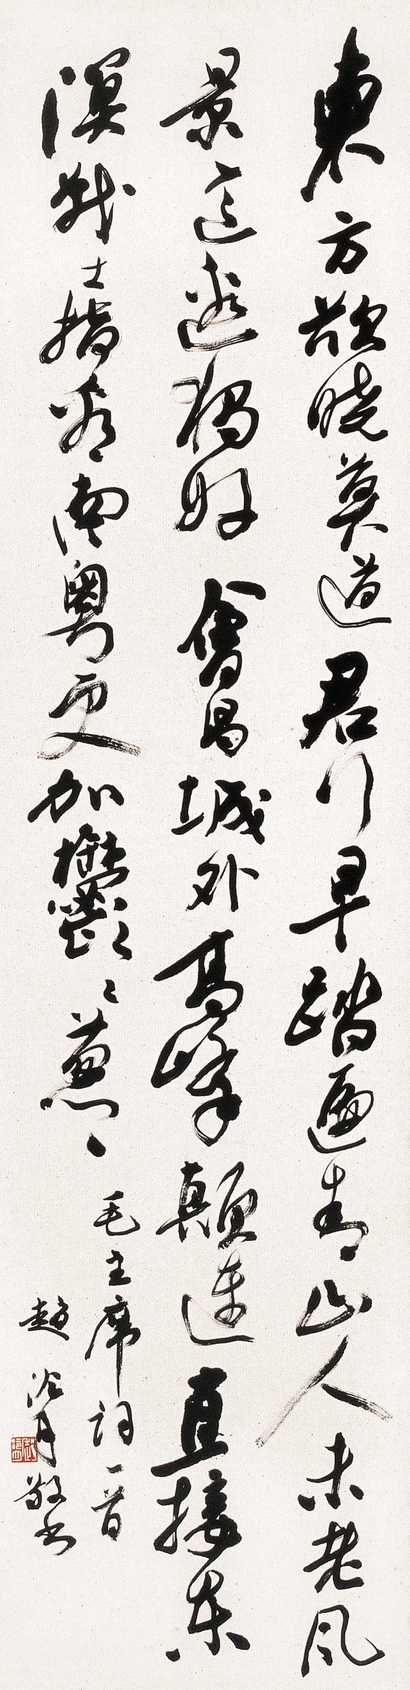 東方欲曉莫道君行早踏遍青山人未老風
景這邊獨好會昌城外高峰顛連直接東
溟戰士指看南粤更加鬱〻葱〻
毛主席詞一首
趙冷月敬書